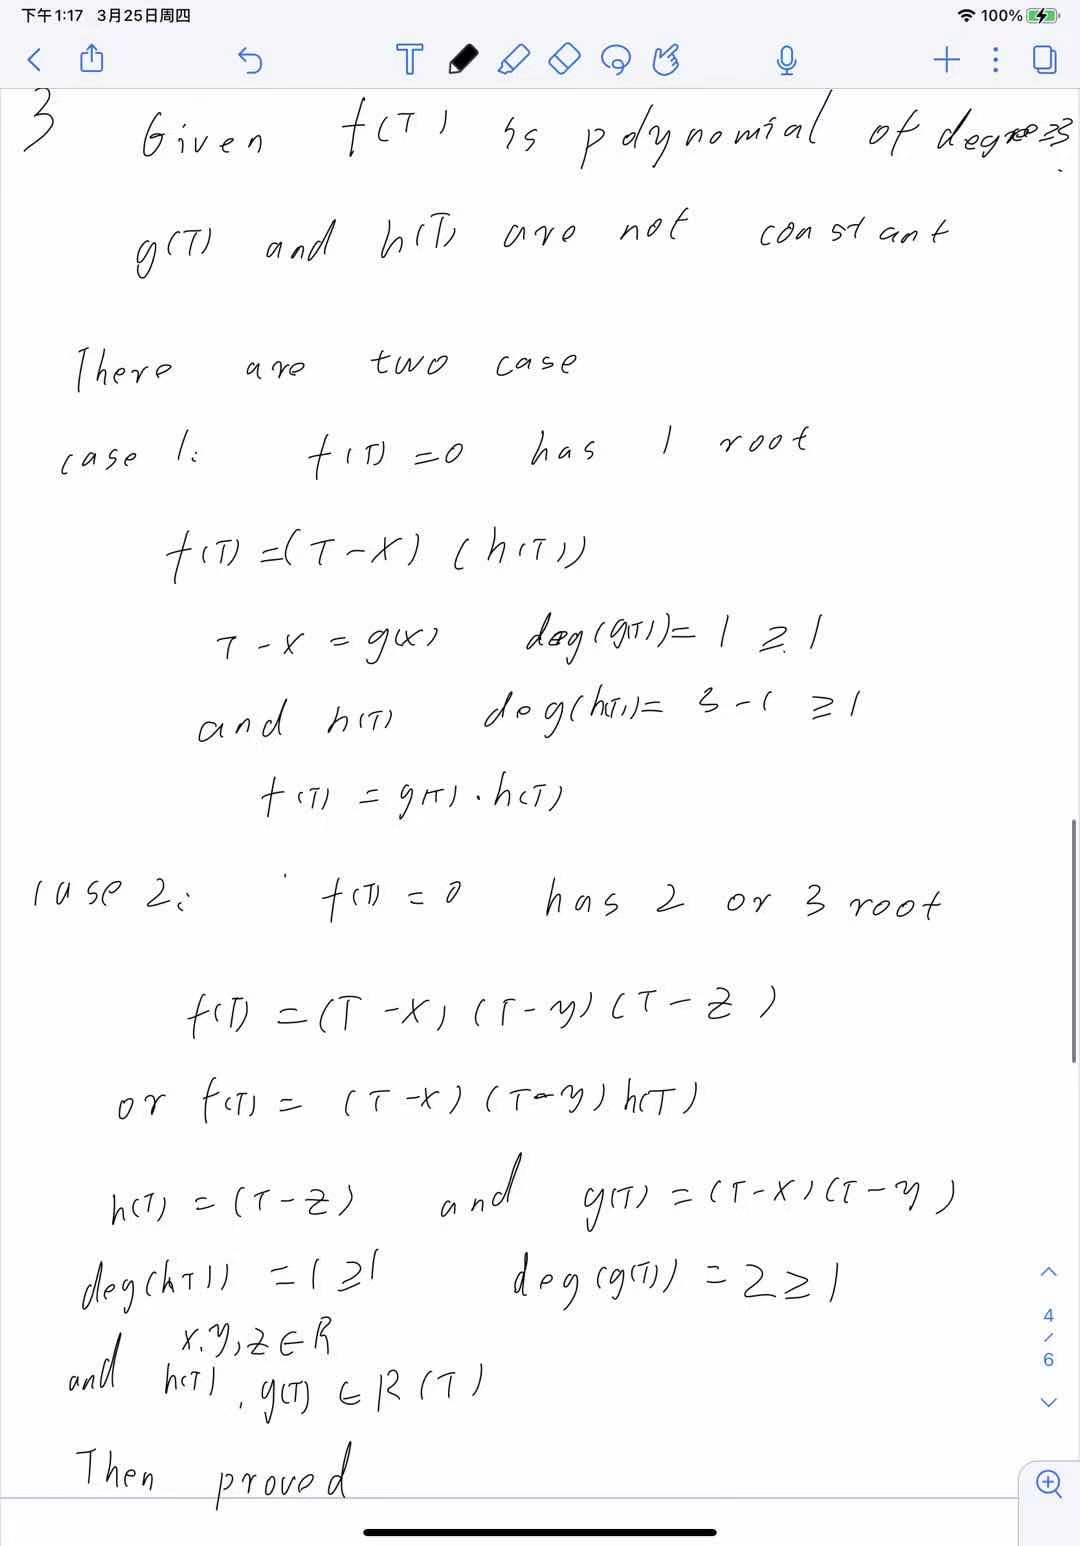 下午1:17 3月25日周四 100%
3 Given f(T) is polynomial of degree≥3
g(T) and h(T) are not constant
There are two case
case 1: f(T) = 0 has 1 root
f(T) = (T - X) (h(T))
T - x = g(x) deg(g(T)) = 1 ≥ 1
and h(T) deg(h(T)) = 3 - 1 ≥ 1
f(T) = g(T) · h(T)
case 2: f(T) = 0 has 2 or 3 root
f(T) = (T - X) (T - y) (T - z)
or f(T) = (T - X) (T - y) h(T)
h(T) = (T - z) and g(T) = (T - X) (T - y)
deg(h(T)) = 1 ≥ 1 deg(g(T)) = 2 ≥ 1
x, y, z ∈ R
and h(T), g(T) ∈ R(T)
Then proved
4
/
6